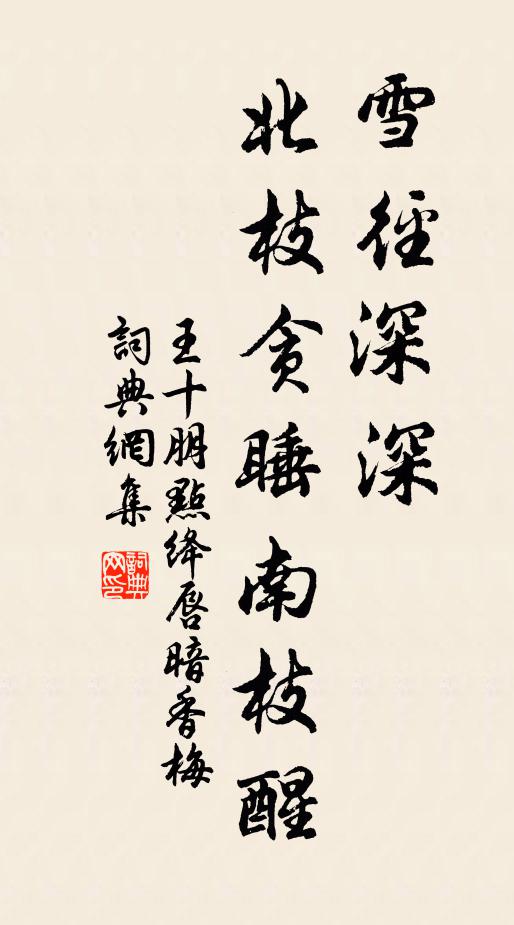 雪徑深深
北枝貪睡南枝醒
王十朋點絳唇暗香梅
詞典網集
詞典網印